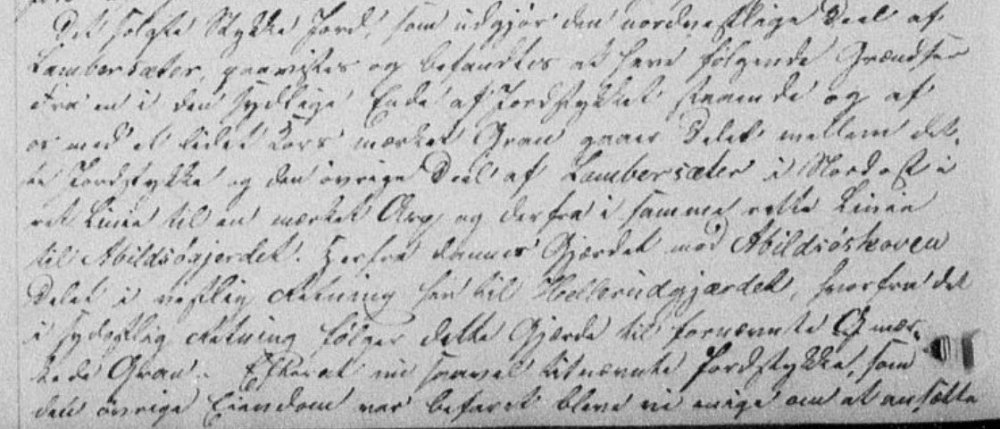 Det solgte Stykke Jord, som udgjør den nordvestlige Deel af
Lambersæter, paavistes og befandtes at have følgende Grændser
Fra en i den sydlige Ende af Jordstykket staaende og af
os med et lidet Kors mærket Gran gaaer Delet mellem det-
te Jordstykke og den øvrige Deel af Lambersæter i Nordost i
ret Linie til en mærket Asp, og derfra i samme rette Linie
til Abildsøgjerdet. Herfra danner Gjærdet mod Abildsøskoven
Delet i vestlig Retning hen til Hellerudgjærdet, hvorfra det
i sydostlig Retning følger dette Gjærde til fornævnte mær-
kede Gran. Efterat nu saavel bemeldte Jordstykke, som
den øvrige Eiendom var befaret bleve vi enige om at ansætte